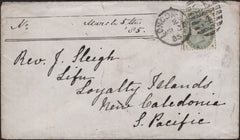 No. March 5th
85.
Rev. J. Sleigh
Lifu
Loyalty Islands
New Caledonia
S. Pacific